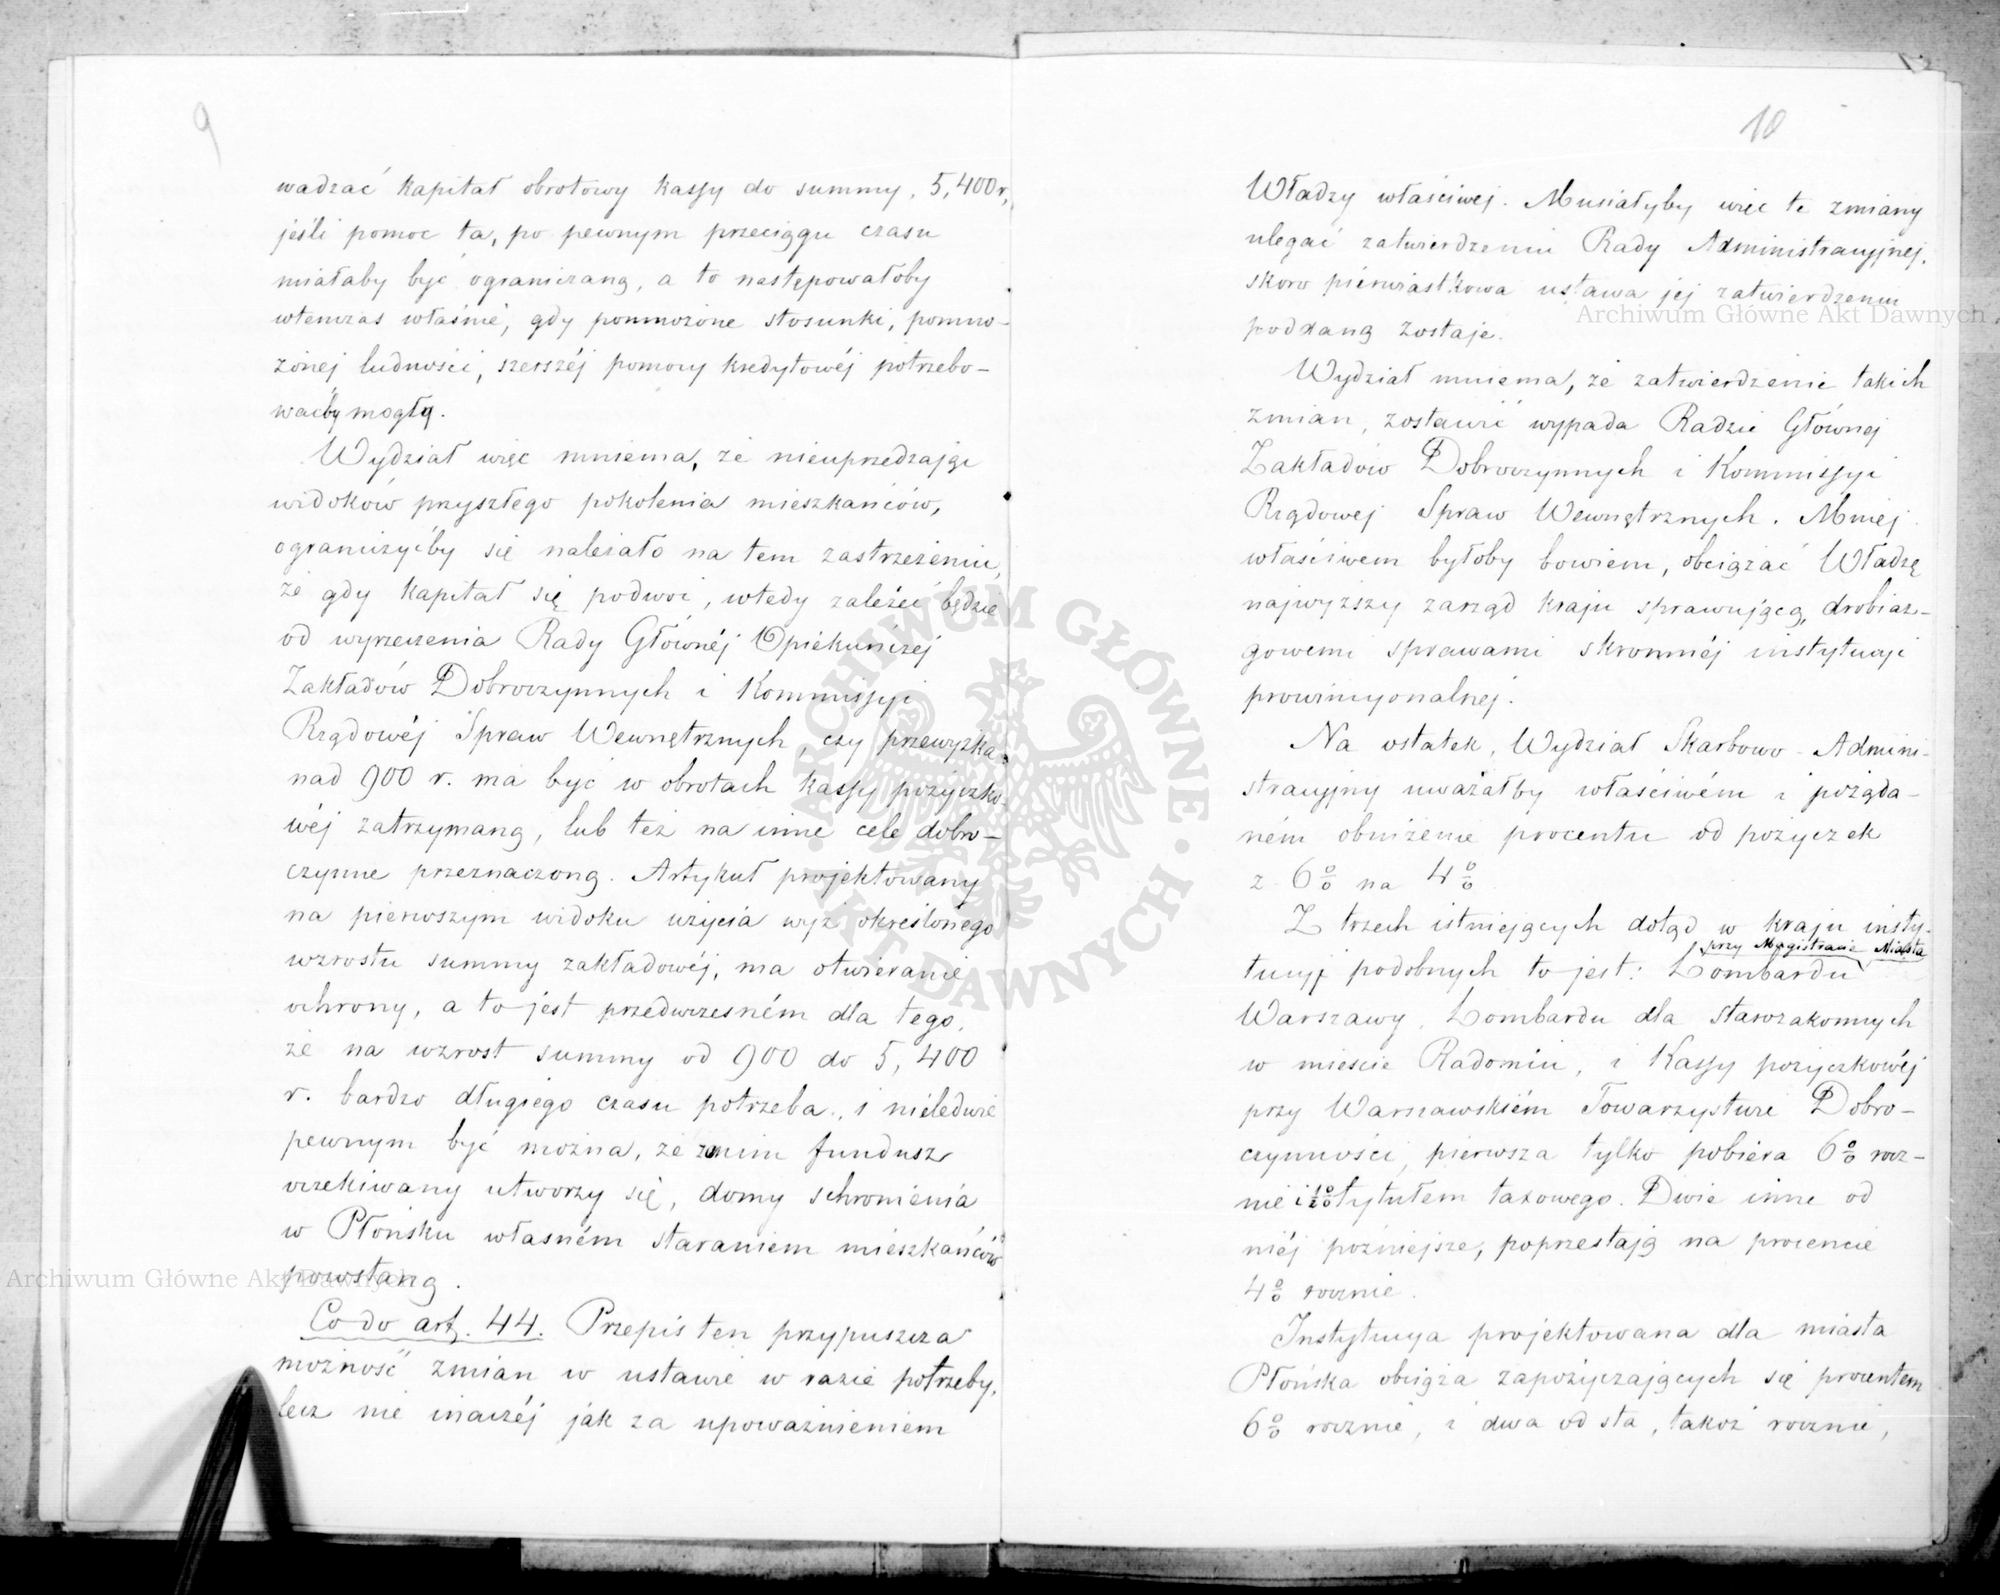 9
wadzać kapitał obrotowy kassy do summy, 5,400 r,
jeśli pomoc ta, po pewnym przeciągu czasu
miałaby być ograniczaną, a to następowałoby
wtenczas właśnie, gdy pomnożone stosunki, pomno-
żonej ludności, szerszéj pomocy kredytowéj potrzebo-
waćby mogły.
Wydział więc mniema, że nieuprzedzając
widoków przyszłego pokolenia mieszkańców,
ograniczyćby się należało na tem zastrzeżeniu,
że gdy kapitał się podwoi, wtedy zależeć będzie
od wyrzeczenia Rady Głównéj Opiekuńczéj
Zakładów Dobroczynnych i Kommissyi
Rządowéj Spraw Wewnętrznych, czy przewyżka
nad 900 r. ma być w obrotach kassy pożyczko-
wéj zatrzymaną, lub też na inne cele dobro-
czynne przeznaczoną. Artykuł projektowany
na pierwszym widoku użycia wyż określonego
wzrostu summy zakładowéj, ma otwieranie
ochrony, a to jest przedwczesném dla tego,
że na wzrost summy od 900 do 5,400
r. bardzo długiego czasu potrzeba, i niéledwie
pewnym być można, że zanim fundusz
oczekiwany utworzy się, domy schronienia
w Płońsku własném staraniem mieszkańców
powstaną.
Co do art. 44. Przepis ten przypuszcza
możność zmian w ustawie w razie potrzeby,
lecz nie inaczéj jak za upoważnieniem
10
Władzy właściwej. Musiałyby więc te zmiany
ulegać zatwierdzeniu Rady Administracyjnej,
skoro pierwiastkowa ustawa jej zatwierdzeniu
poddaną zostaje.
Wydział mniema, że zatwierdzenie takich
zmian, zostawić wypada Radzie Głównej
Zakładów Dobroczynnych i Kommissyi
Rządowej Spraw Wewnętrznych. Mniej
właściwem byłoby bowiem, obciążać Władzę
najwyższy zarząd kraju sprawującą, drobiaz-
gowemi sprawami skromnéj instytucyi
prowincyonalnéj.
Na ostatek, Wydział Skarbowo-Admini-
stracyjny uważałby właściwém i pożąda-
ném obniżenie procentu od pożyczek
z 6% na 4%
Z trzech istniejących dotąd w kraju insty-
tucyj podobnych to jest: Lombardu przy Magistracie Miasta
Warszawy, Lombardu dla starozakonnych
w mieście Radomiu, i Kassy pożyczkowéj
przy Warszawskiém Towarzystwie Dobro-
czynności, pierwsza tylko pobiera 6% rocz-
nie i ½% tytułem taxowego. Dwie inne od
niéj późniejsze, poprzestają na procencie
4% rocznie.
Instytucya projektowana dla miasta
Płońska obciąża zapożyczających się procentem
6% rocznie, i dwa od sta, takoż rocznie,
Archiwum Główne Akt Dawnych
Archiwum Główne Akt Dawnych
ARCHIWUM GŁÓWNE AKT DAWNYCH